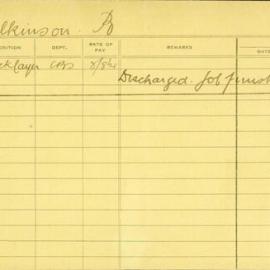 lkinson. B
OSITION DEPT. RATE OF PAY REMARKS DATE
cklayer
Discharged. Job finish